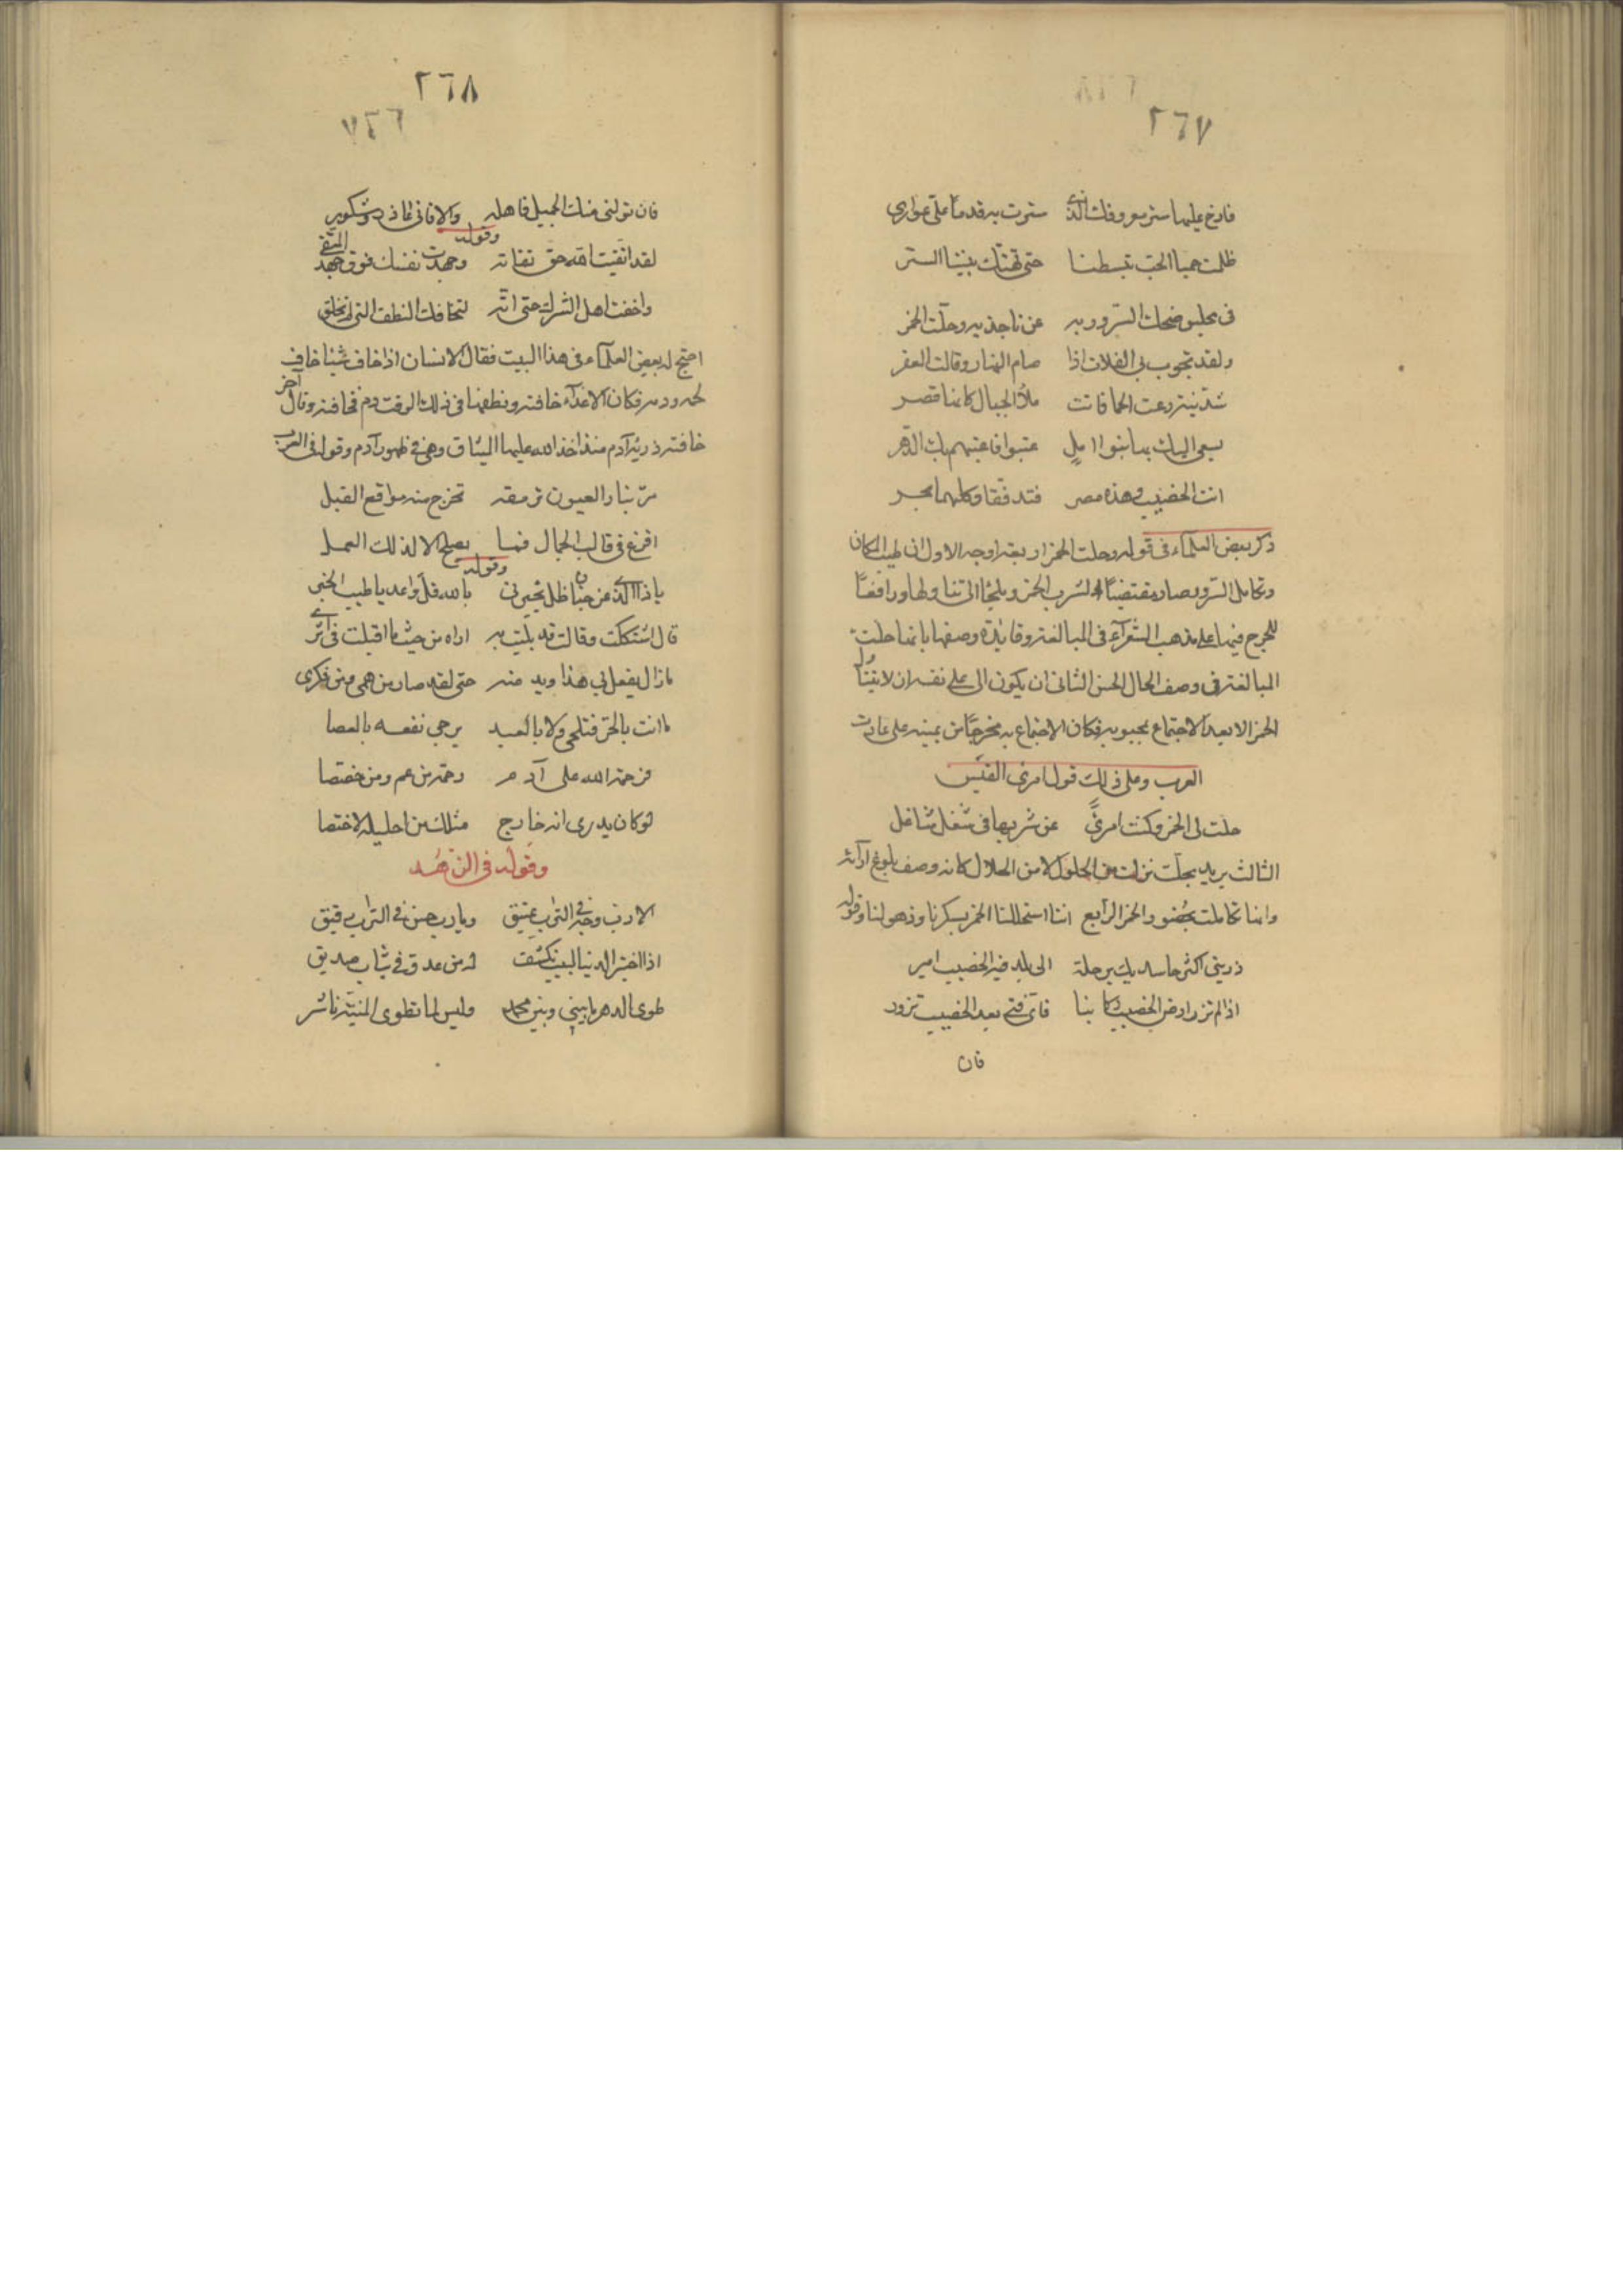 ٢٦٧
فارخ عليها ستر معروفك الذي سترت به قدما على عواري
ظلت حميا الحب تبسطنا حتى تهتك بيننا الستر
في مجلس ضحك السرور به عن ناجذيه وحلت الخمر
ولقد تجوب بي الفلات اذا صام النهار وقالت العفر
شدنية رعت الحما فاتت ملأ الجبال كانها قصر
يسعى اليك بها بنوا امل عتبوا فاعتبهم بك الدهر
انت الخصيب وهذه مصر فتدفقا وكلاهما بحر
ذكر بعض العلماء في قوله وحلت الخمر اربعة اوجه الاول ان طيب المكان
وتكامل السرور صار مقتضيًا لشرب الخمر وملجئا الى تناولها ورافعًا
للحرج فيها على مذهب الشعرآء في المبالغة وفائدة وصفها بانها حلت
المبالغة في وصف الحال الحسن الثاني ان يكون الى على نفسه ان لا يتناول
الخمر الا بعد الاجتماع بمحبوبه فكان الاجتماع به مخرجًا من يمينه على عادت
العرب وعلى ذلك قول امرئ القيس
حلت لي الخمر وكنت امرئً عن شربها في شغل شاغل
الثالث يريد بحلت نزلت من الحلول لا من الحلال كانه وصف بلوغ ارآئه
وانها تكاملت بحضور الخمر الرابع اننا استحللنا الخمر بسكرنا وذهولنا وقوله
ذريني اكثر حاسديك برحلة الى بلد فيه الخصيب امير
اذا لم تزر ارض الخصيب ركابنا فاي فتى بعد الخصيب تزور
فان
٢٦٨
فان تولني منك الجميل فاهله والا فاني عاذر وشكور
وقوله
لقد اتقيت الله حق تقاته وجهدت نفسك فوق جهد المتقي
واخفت اهل الشرك حتى انه لتخافك النطف التي لم تخلق
احتج له بعض العلمآء في هذا البيت فقال الانسان اذا خاف شيئا خاف
لحمه ودمه فكان الاعدآء خافته ونطفها في ذلك الوقت دم فخافته وقال آخر
خافته ذرية آدم منذ اخذ الله عليها الميثاق وهي في ظهور آدم وقوله في
مرّ بنا والعيون ترمقه تجرح منه مواقع القبل
افرغ في قالب الجمال فما يصلح الا لذلك العمل
وقوله
يا ذا الذي عن جنان ظل يخبرني بالله قل واعد يا طيب الخبر
قال اشتكت وقالت قد بليت به اراه من حيث ما اقبلت في اثري
مازال يفعل بي هذا ويد منه حتى لقد صار من همي ومن فكري
ما انت بالحر فتلحى ولا بالعبد يرجى نفعه بالعصا
فرحمة الله على آدم رحمة من عم ومن خصصا
لو كان يدري انه خارج مثلك من احليله لاختصا
وقوله في الزهد
الا رب وجه في التراب عتيق ويا رب حسن في التراب رقيق
اذا اختبر الدنيا لبيب تكشفت له من عدو في ثياب صديق
طوى الدهر ما بيني وبين محمد وليس لما تطوى المنية ناشر